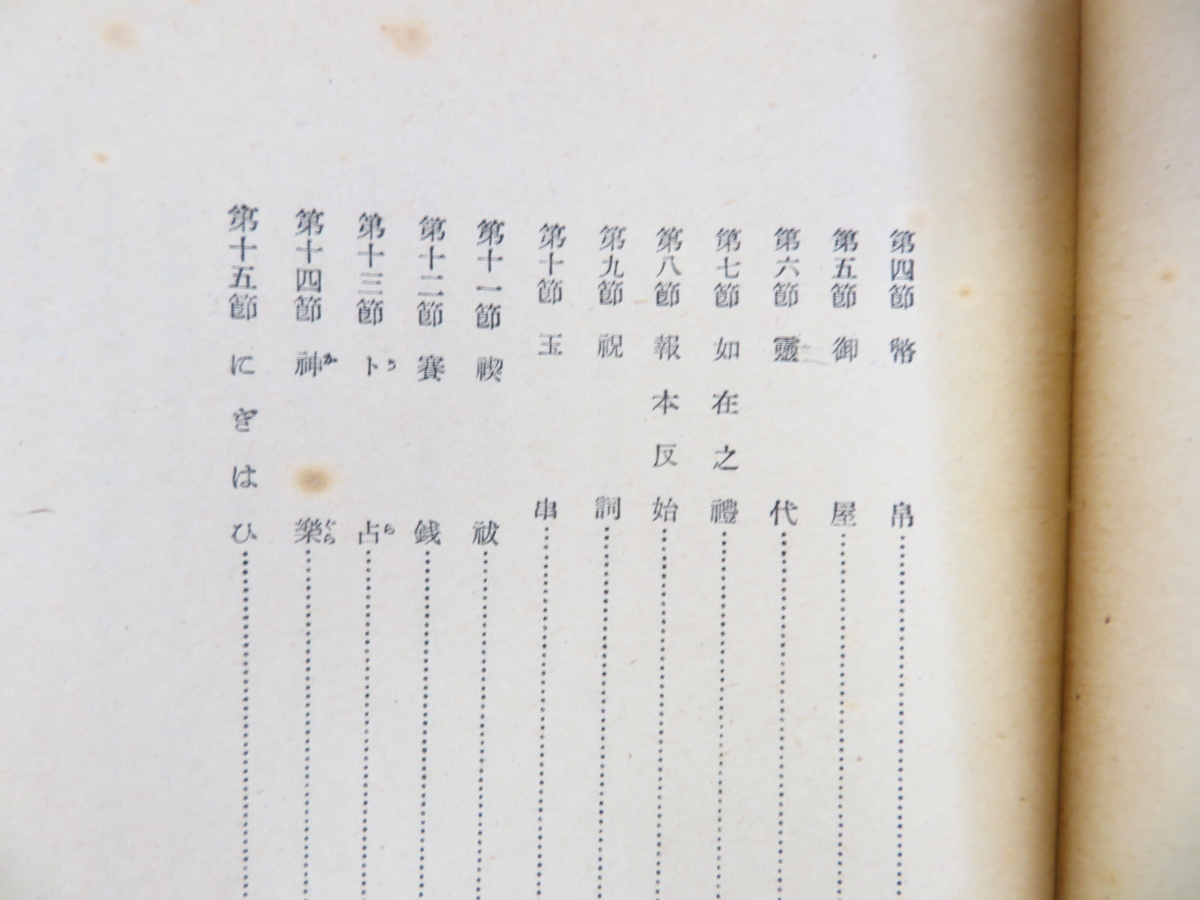 第四節 幣帛
第五節 御屋
第六節 靈代
第七節 如在之禮
第八節 報本反始
第九節 祝詞
第十節 玉串
第十一節 禊祓
第十二節 賽銭
第十三節 卜占
うら
第十四節 神樂
かぐら
第十五節 にぎはひ